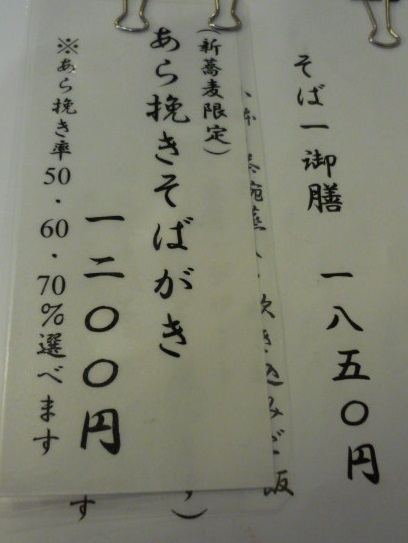 そば一御膳 一八五〇円
(新蕎麦限定)
あら挽きそばがき
一二〇〇円
※あら挽き率50・60・70%選べます